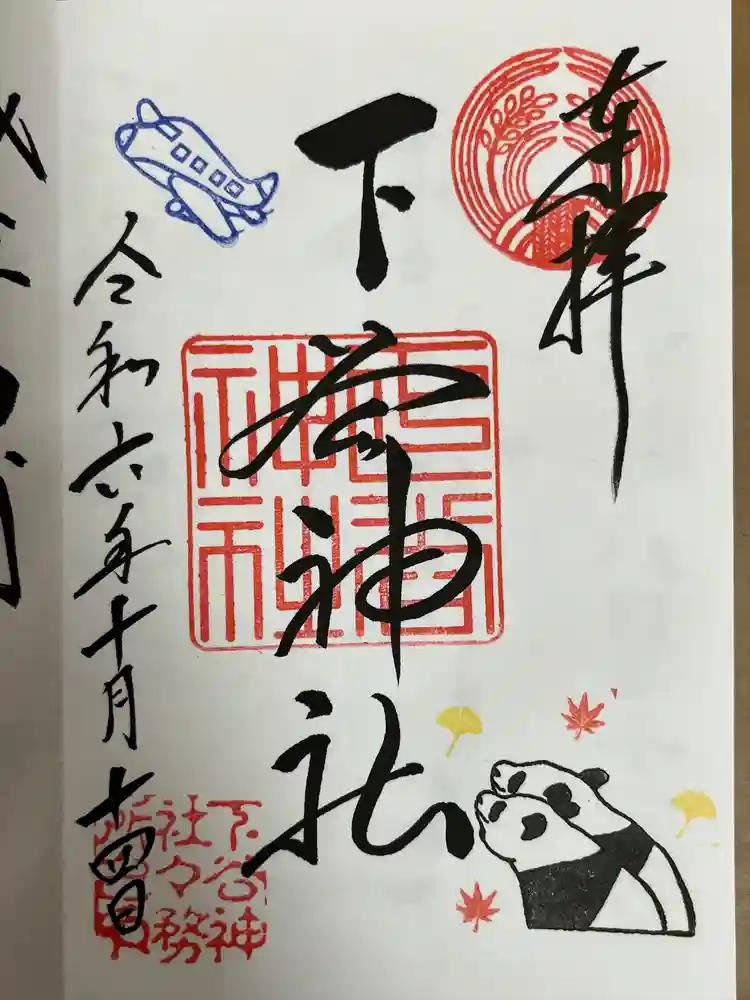 奉拝
下谷神社
令和六年十月十四日
下谷神
社々務
所印